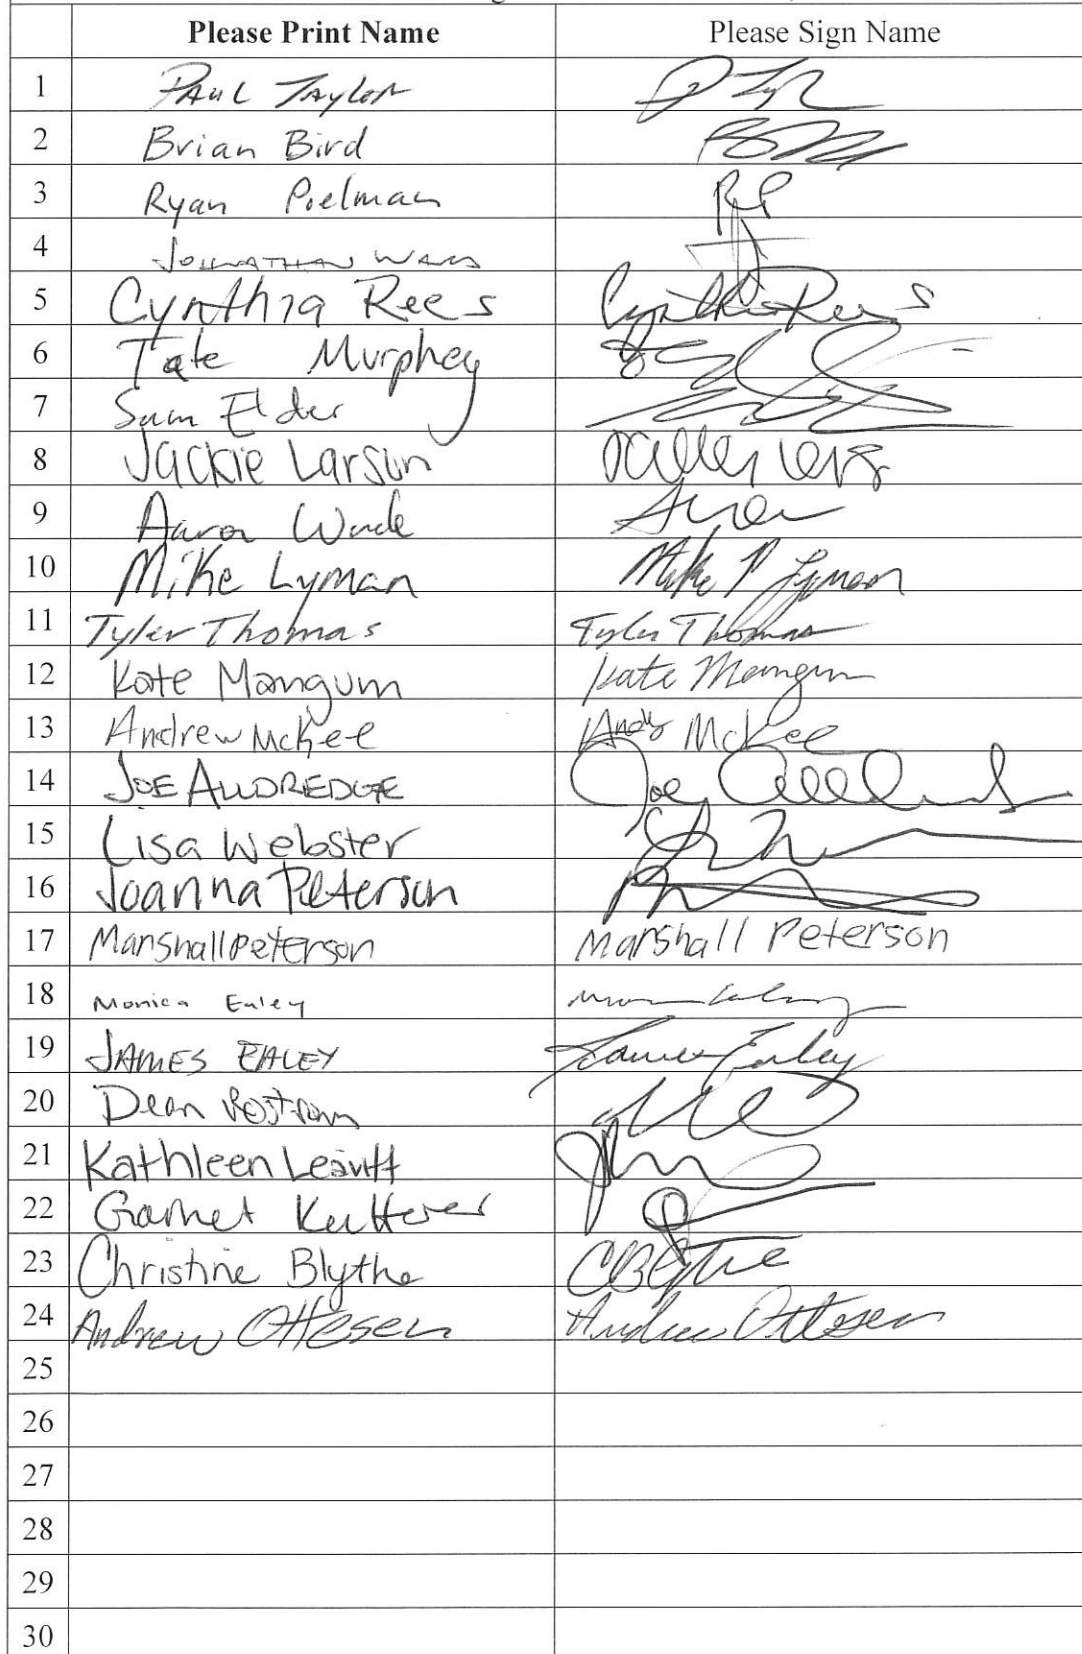 Please Print Name Please Sign Name
1 PAUL TAYLOR
2 Brian Bird
3 Ryan Poelman RP
4 JOHNATHAN
5 Cynthia Rees Cynthia Rees
6 Tate Murphey
7 Sam Elder
8 Jackie Larson
9 Aaron Wade
10 Mike Lyman Mike P Lyman
11 Tyler Thomas Tyler Thomas
12 Kate Mangum Kate Mangum
13 Andrew McKee Andy McKee
14 JOE ALLDREDGE Joe
15 Lisa Webster
16 Joanna Peterson
17 Marshall Peterson Marshall Peterson
18 Monica Ealey
19 JAMES EALEY James Ealey
20 Dean
21 Kathleen Leavitt
22 Garnet Kutterer
23 Christine Blythe CBlythe
24 Andrew Ottesen Andrew Ottesen
25
26
27
28
29
30